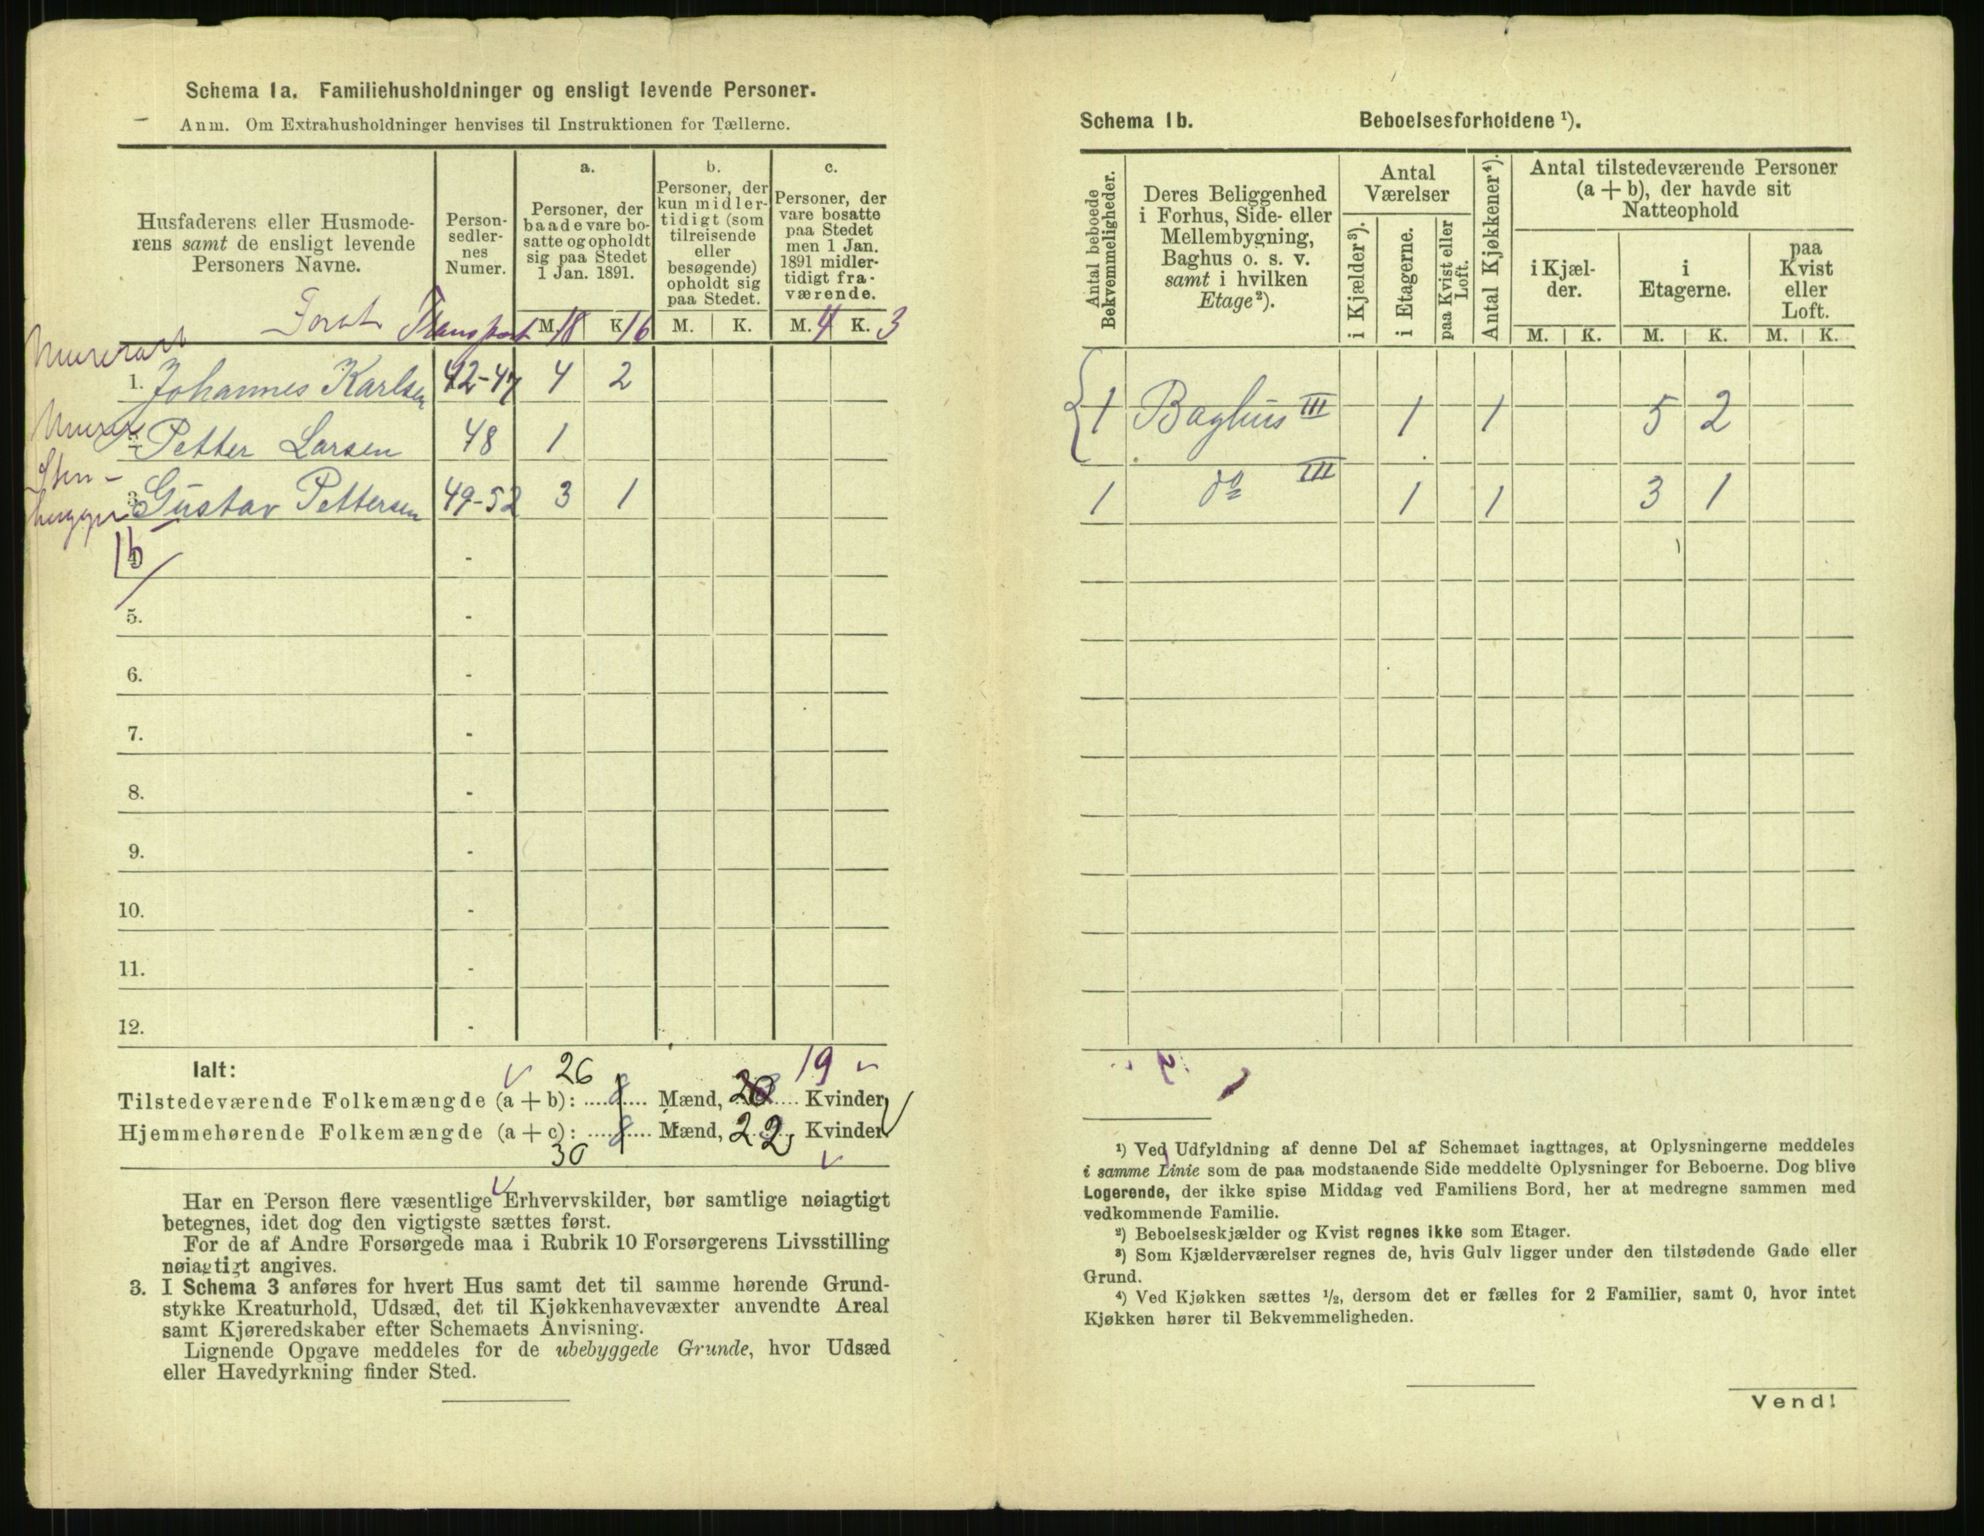 Schema 1a. Familiehusholdninger og ensligt levende Personer.
Anm. Om Extrahusholdninger henvises til Instruktionen for Tællerne.
Husfaderens eller Husmode-
rens samt de ensligt levende
Personers Navne.
Person-
sedler-
nes
Numer.
a.
Personer, der
baade vare bo-
satte og opholdt
sig paa Stedet
1 Jan. 1891.
b.
Personer, der
kun midler-
tidigt (som
tilreisende
eller
besøgende)
opholdt sig
paa Stedet.
c.
Personer, der
vare bosatte
paa Stedet
men 1 Jan.
1891 midler-
tidigt fra-
værende.
Transport M. 18 K. 16 M. K. M. 4 K. 3
1. Johannes Karlsen 42-47 4 2
Murer
2. Petter Larsen 48 1
Sten-
hugger
3. Gustav Pettersen 49-52 3 1
16
4. -
5. -
6. -
7. -
8. -
9. -
10. -
11. -
12. -
Ialt: 26 19
Tilstedeværende Folkemængde (a + b): 8 Mænd, 20 Kvinder
Hjemmehørende Folkemængde (a + c): 8 Mænd, 22 Kvinder.
30
Har en Person flere væsentlige Erhvervskilder, bør samtlige nøiagtigt
betegnes, idet dog den vigtigste sættes først.
For de af Andre Forsørgede maa i Rubrik 10 Forsørgerens Livsstilling
nøiagtigt angives.
3. I Schema 3 anføres for hvert Hus samt det til samme hørende Grund-
stykke Kreaturhold, Udsæd, det til Kjøkkenhavevæxter anvendte Areal
samt Kjøreredskaber efter Schemaets Anvisning.
Lignende Opgave meddeles for de ubebyggede Grunde, hvor Udsæd
eller Havedyrkning finder Sted.
Schema 1b. Beboelsesforholdene ¹).
Antal beboede
Bekvemmeligheder.
Deres Beliggenhed
i Forhus, Side- eller
Mellembygning,
Baghus o. s. v.
samt i hvilken
Etage²).
Antal
Værelser
i Kjælder³).
i Etagerne.
paa Kvist eller
Loft.
Antal Kjøkkener⁴).
Antal tilstedeværende Personer
(a + b), der havde sit
Natteophold
i Kjæl-
der.
i
Etagerne.
paa
Kvist
eller
Loft.
M. K. M. K. M. K.
1 Baghus III 1 1 5 2
1 do III 1 1 3 1
¹) Ved Udfyldning af denne Del af Schemaet iagttages, at Oplysningerne meddeles
i samme Linie som de paa modstaaende Side meddelte Oplysninger for Beboerne. Dog blive
Logerende, der ikke spise Middag ved Familiens Bord, her at medregne sammen med
vedkommende Familie.
²) Beboelseskjælder og Kvist regnes ikke som Etager.
³) Som Kjælderværelser regnes de, hvis Gulv ligger under den tilstødende Gade eller
Grund.
⁴) Ved Kjøkken sættes ½, dersom det er fælles for 2 Familier, samt 0, hvor intet
Kjøkken hører til Bekvemmeligheden.
Vend!